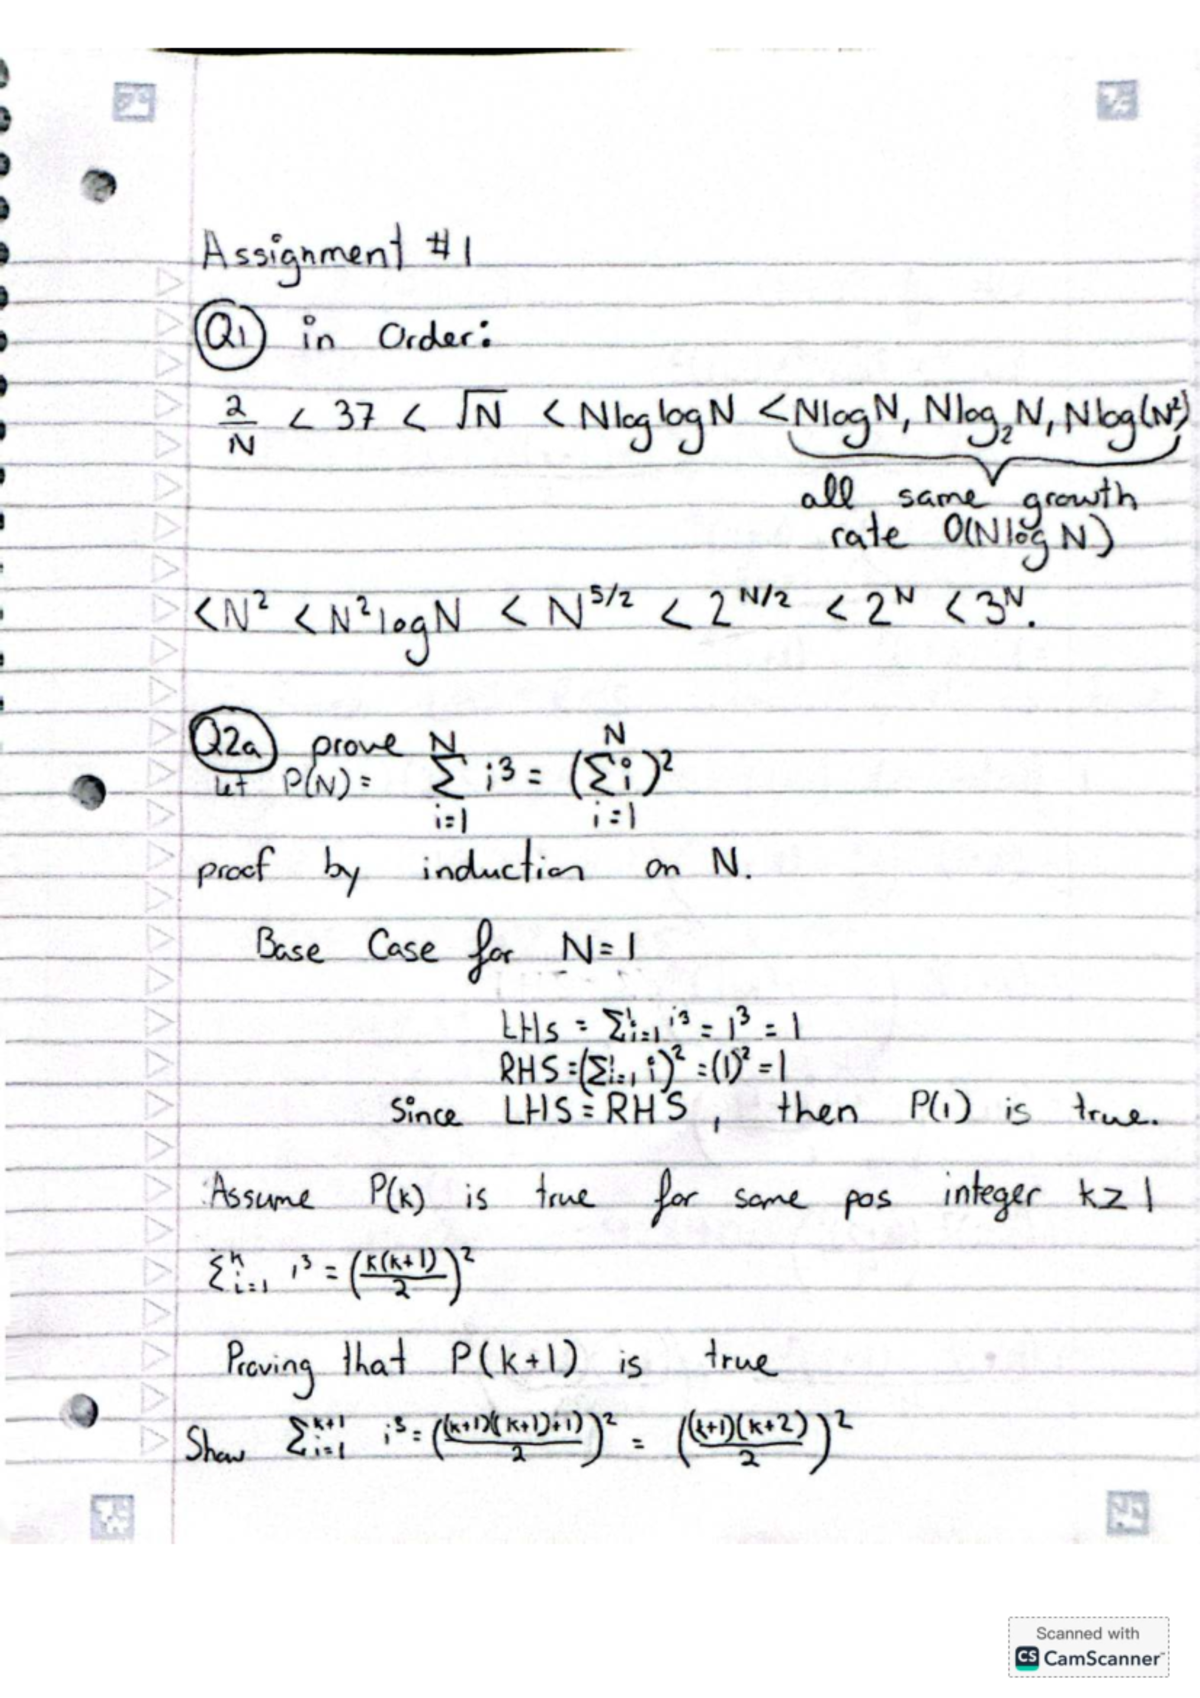 Assignment #1
Q1 in Order:
2/N < 37 < √N < NloglogN < NlogN, Nlog₂N, Nlog(N²)
all same growth
rate O(NlogN)
< N² < N²logN < N^5/2 < 2^N/2 < 2^N < 3^N.
Q2a prove
Let P(N) = ∑_{i=1}^{N} i³ = (∑_{i=1}^{N} i)²
proof by induction on N.
Base Case for N=1
LHS = ∑_{i=1}^{1} i³ = 1³ = 1
RHS = (∑_{i=1}^{1} i)² = (1)² = 1
Since LHS = RHS, then P(1) is true.
Assume P(k) is true for some pos integer k ≥ 1
∑_{i=1}^{k} i³ = (k(k+1)/2)²
Proving that P(k+1) is true
Show ∑_{i=1}^{k+1} i³ = ((k+1)((k+1)+1)/2)² = ((k+1)(k+2)/2)²
Scanned with
CS CamScanner™